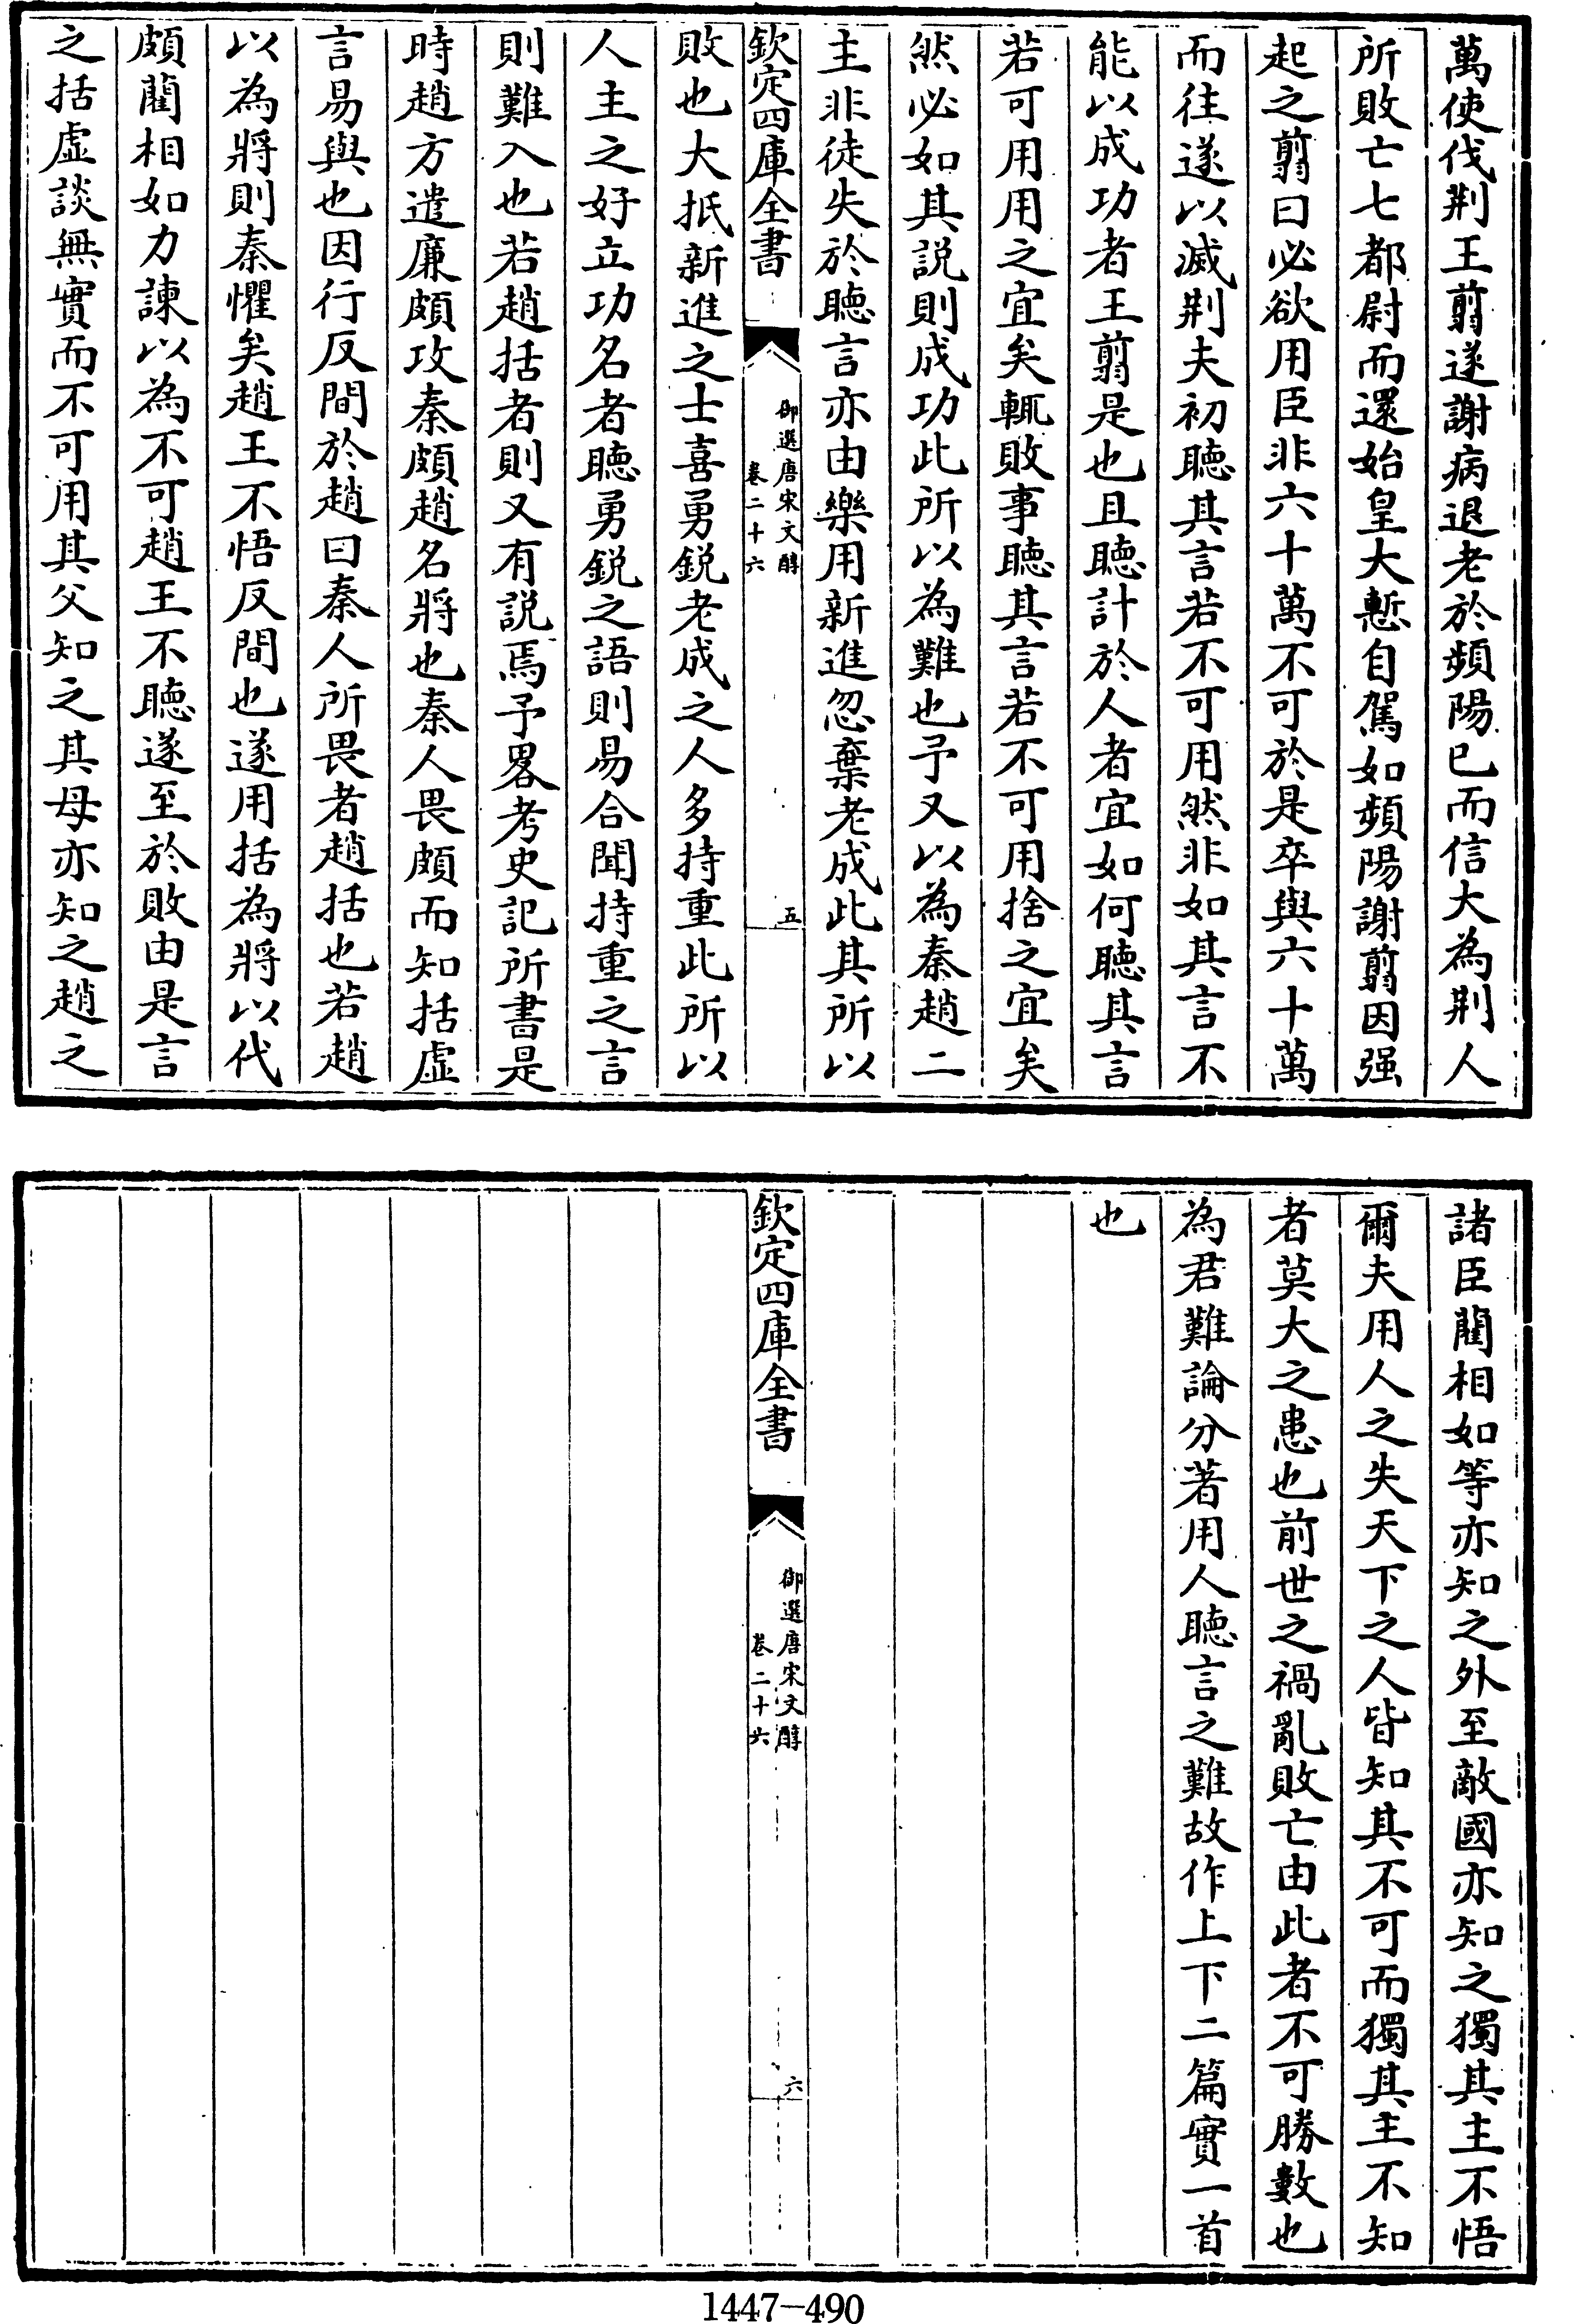 萬使伐荆王翦遂謝病退老於頻陽已而信大為荆人
所敗亡七都尉而還始皇大慙自駕如頻陽謝翦因强
起之翦曰必欲用臣非六十萬不可於是卒與六十萬
而往遂以滅荆夫初聽其言若不可用然非如其言不
能以成功者王翦是也且聽計於人者宜如何聽其言
若可用用之宜矣輒敗事聽其言若不可用捨之宜矣
然必如其説則成功此所以為難也予又以為秦趙二
主非徒失於聽言亦由樂用新進忽棄老成此其所以
欽定四庫全書
御選唐宋文醇
卷二十六
五
敗也大抵新進之士喜勇鋭老成之人多持重此所以
人主之好立功名者聽勇鋭之語則易合聞持重之言
則難入也若趙括者則又有説焉予畧考史記所書是
時趙方遣廉頗攻秦頗趙名將也秦人畏頗而知括虛
言易與也因行反間於趙曰秦人所畏者趙括也若趙
以為將則秦懼矣趙王不悟反間也遂用括為將以代
頗藺相如力諫以為不可趙王不聽遂至於敗由是言
之括虛談無實而不可用其父知之其母亦知之趙之
諸臣藺相如等亦知之外至敵國亦知之獨其主不悟
爾夫用人之失天下之人皆知其不可而獨其主不知
者莫大之患也前世之禍亂敗亡由此者不可勝數也
為君難論分著用人聽言之難故作上下二篇實一首
也
欽定四庫全書
御選唐宋文醇
卷二十六
六
1447-490